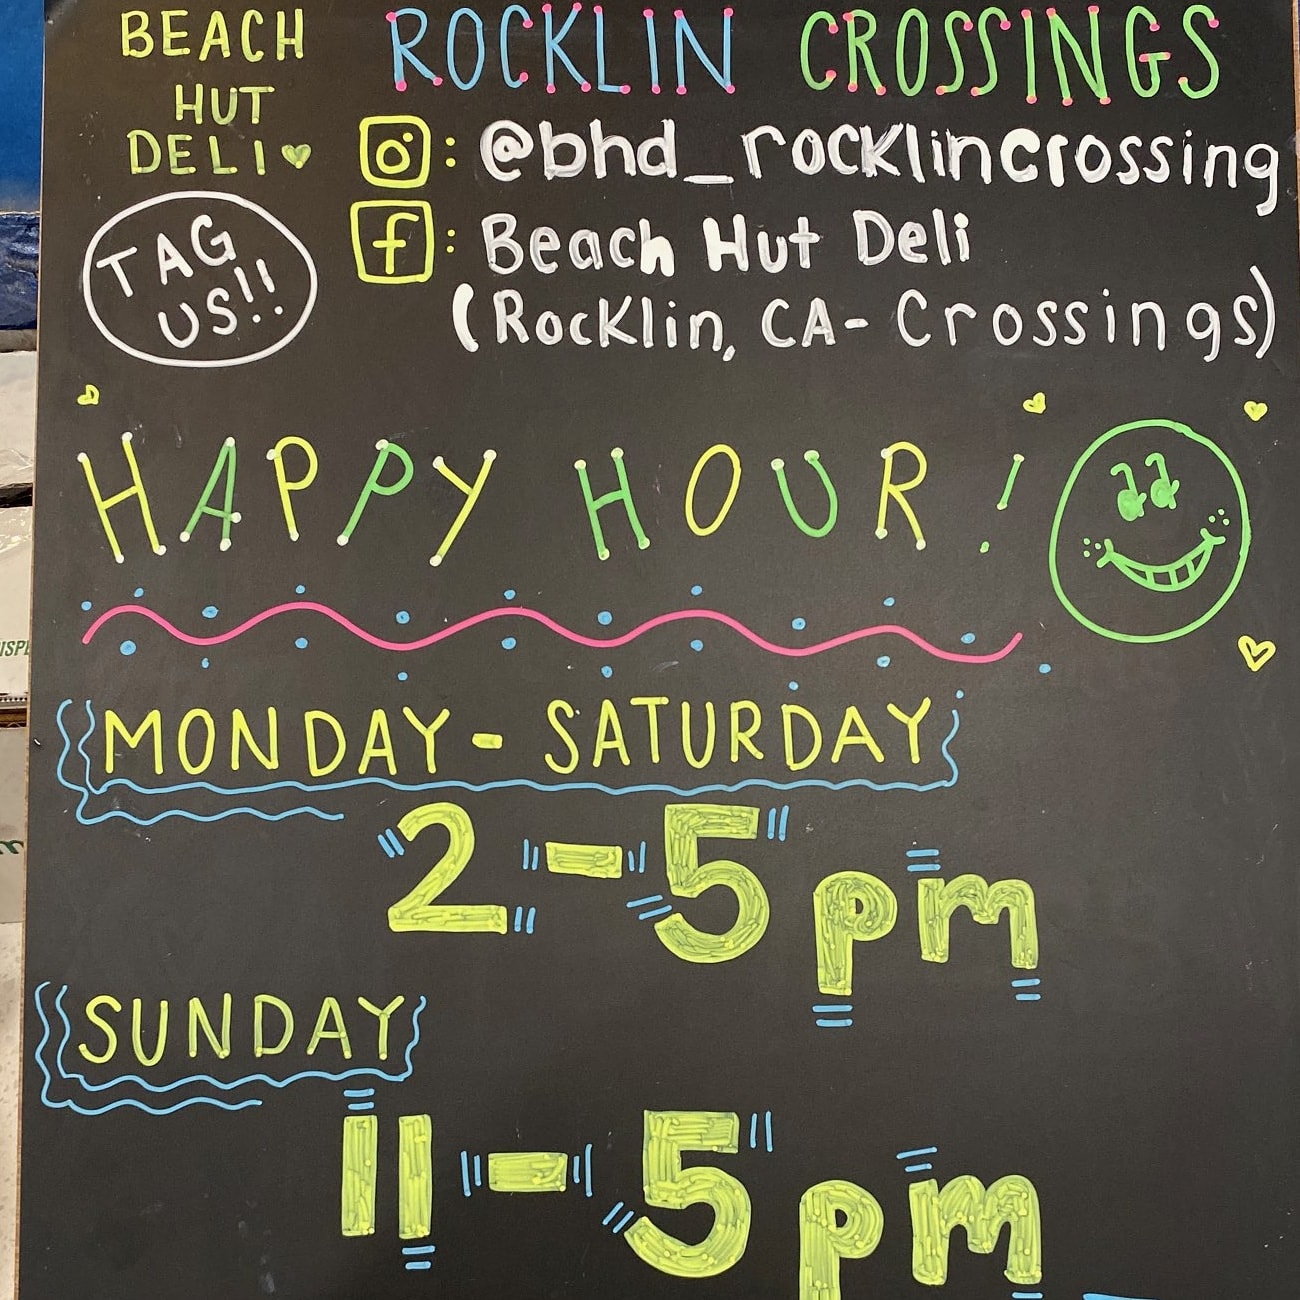 BEACH
HUT
DELI
ROCKLIN CROSSINGS
: @bhd_rocklincrossing
f : Beach Hut Deli
(Rocklin, CA- Crossings)
TAG
US!!
HAPPY HOUR!
MONDAY - SATURDAY
2-5pm
SUNDAY
11-5pm